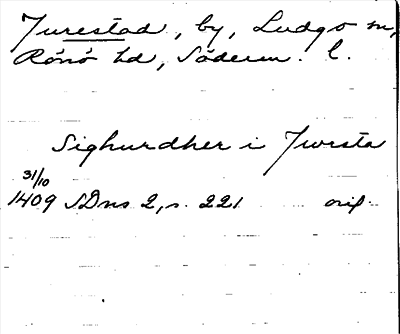 Jurestad, by, Ludgo sn,
Rönö hd, Söderm. l.
Sighurdher i Jwrsta
31/10
1409 SDns 2, s. 221 orig.